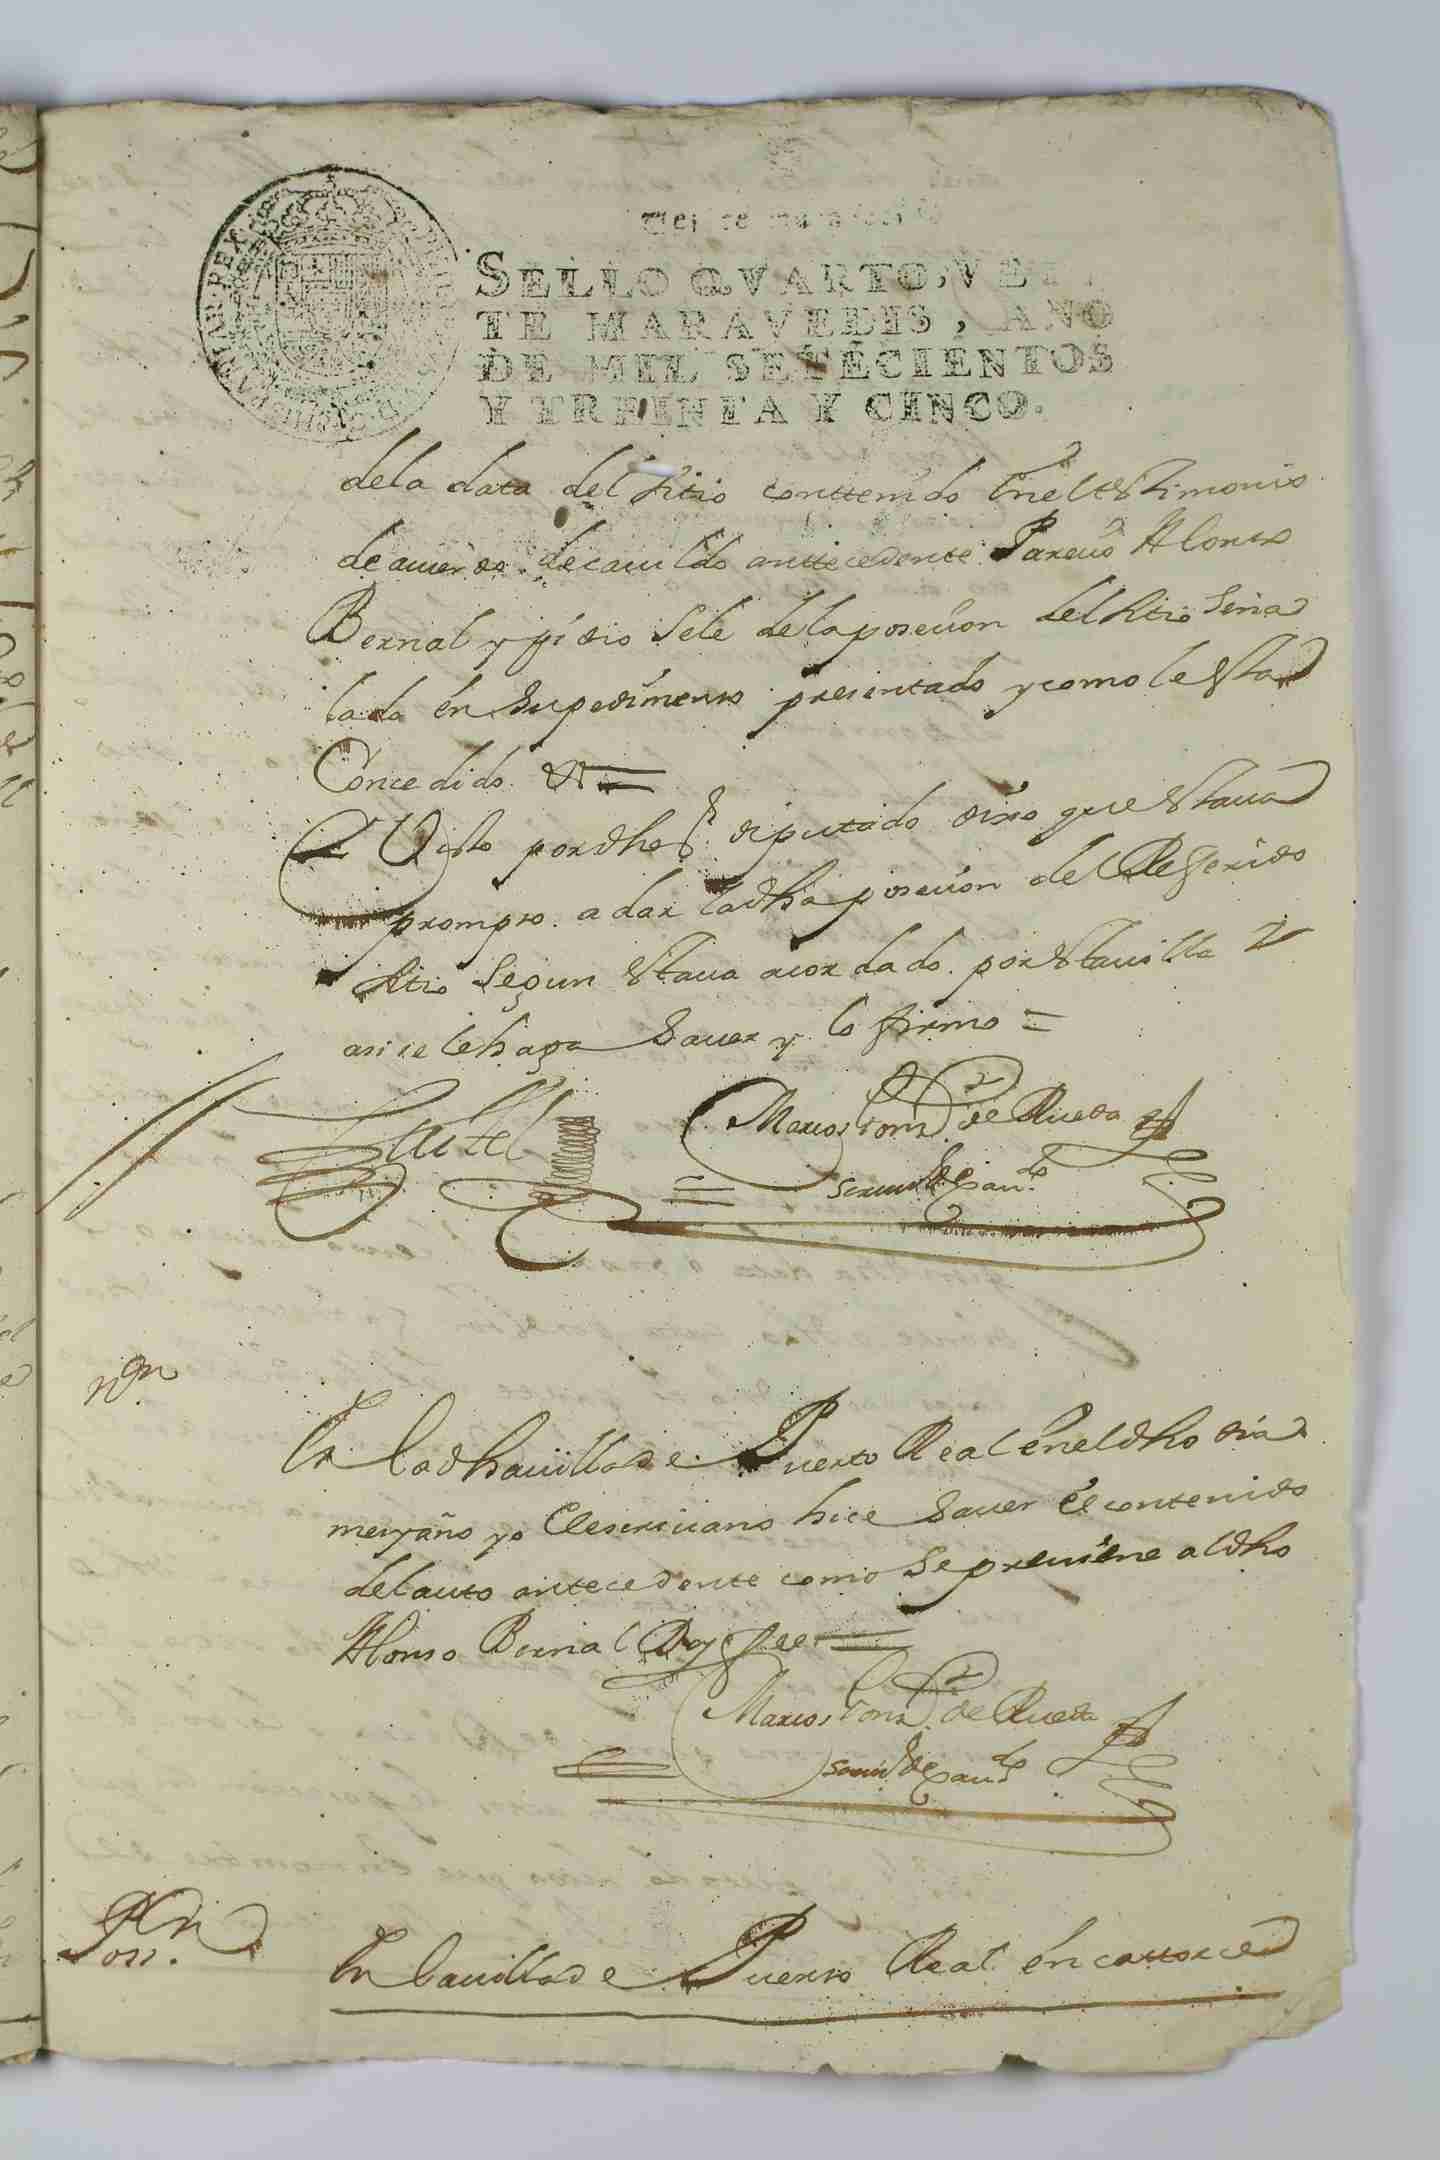 SELLO QVARTO, VEIN
TE MARAVEDIS, AÑO
DE MIL SETECIENTOS
Y TREINTA Y CINCO.
dela data del sitio conttenido En el testimonio
de acuerdo de cauildo anttecedente Parecio Alonso
Bernal y pidio Sele de la posecion del sitio Seña
lado en su pedimento presentado y como le esta
Concedido &
Visto por dho Sr. diputado dixo que estaua
prompto a dar la dha posecion del Referido
sitio Segun estaua acordado por esta uilla y
asi se le haga Sauer y lo firmo =
Marcos Gonz. de Rueda
scriuº de Cauº
nn
En la dha uilla de Puerto Real en el dho dia
mes y año yo El escriuano hice Sauer el contenido
del auto antecedente como Se preuiene al dho
Alonso Bernal Doy fee =
Marcos Gonz. de Rueda
scriuº de Cauº
Poss.on
En la uilla de Puerto Real en cattorce